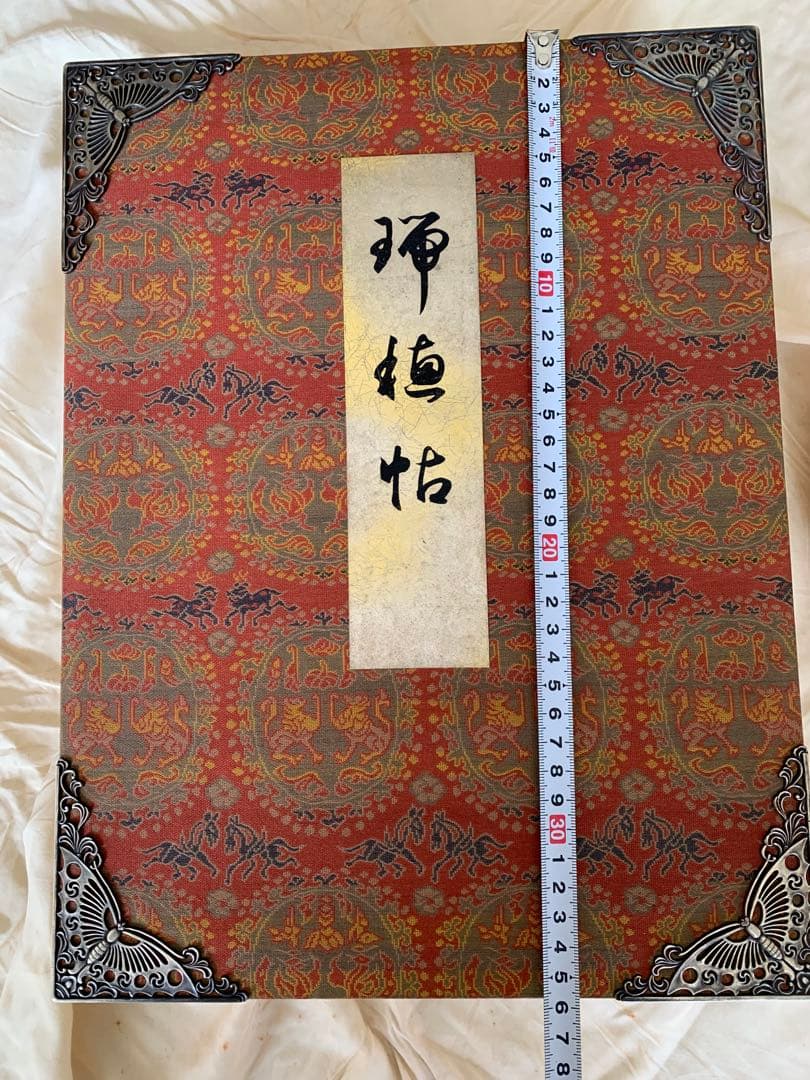 瑞穂帖
2 3 4 5 6 7 8 9 10 1 2 3 4 5 6 7 8 9 20 1 2 3 4 5 6 7 8 9 30 1 2 3 4 5 6 7 8